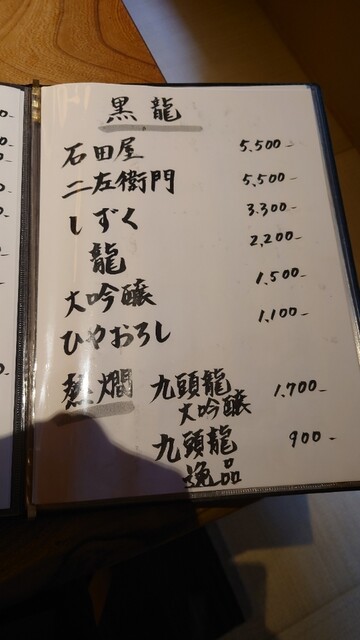 黒龍
石田屋 5.500-
二左衛門 5,500-
しずく 3.300-
龍 2,200-
大吟醸 1,500-
ひやおろし 1,100-
熱燗 九頭龍 大吟醸 1.700-
九頭龍 逸品 900-